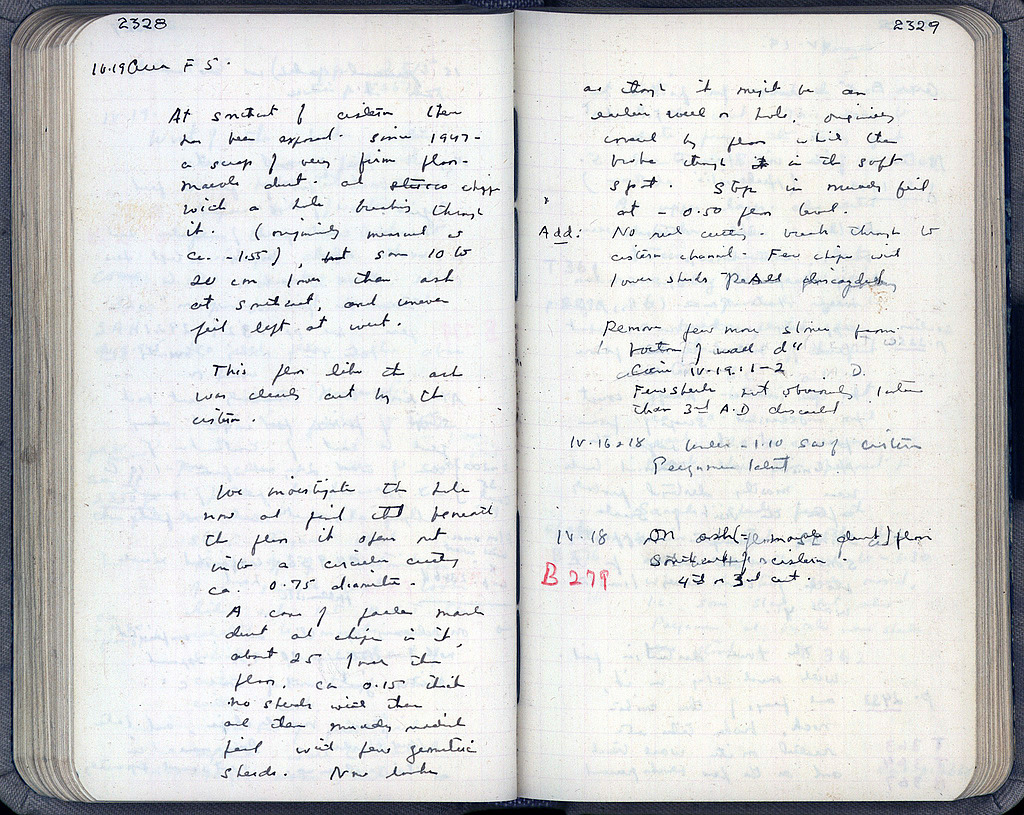 2328
IV.19 Area F 5.
At southeast of cistern there
has been exposed since 1947 -
a scrap of very firm floor -
marble dust and stucco chips
with a hole breaking through
it. (originally measured as
ca. -1.55), but some 10 to
20 cm lower than ash
at southeast, and uneven
fill left at west.
This floor like the ash
was clearly cut by the
cistern
We investigate the hole
now and find that beneath
the floor it opens out
into a circular cutting
ca. 0.75 diameter.
A core of fallen marble
dust and chips in it,
about 25 lower than
floor, ca 0.15 thick
no sherds with them
and then muddy
fill with few geometric
sherds. Now looks
2329
as though it might be an
earlier well or hole, originally
covered by floor which then
broke through in the soft
spot. Stop in muddy fill
at -0.50 floor level.
Add: No real cutting - breaks through to
cistern channel. Few chips with
lower sherds
Remove few more stones from
bottom of well
Coin IV.19.11-2 N. D.
Few sherds not obviously later
than 3rd A.D discard
IV-16-18 Under -1.10 S of cistern
Pergamene
IV.18 On ash (= marble dust) floor
southeast of cistern.
B 279 4th or 3rd cent.